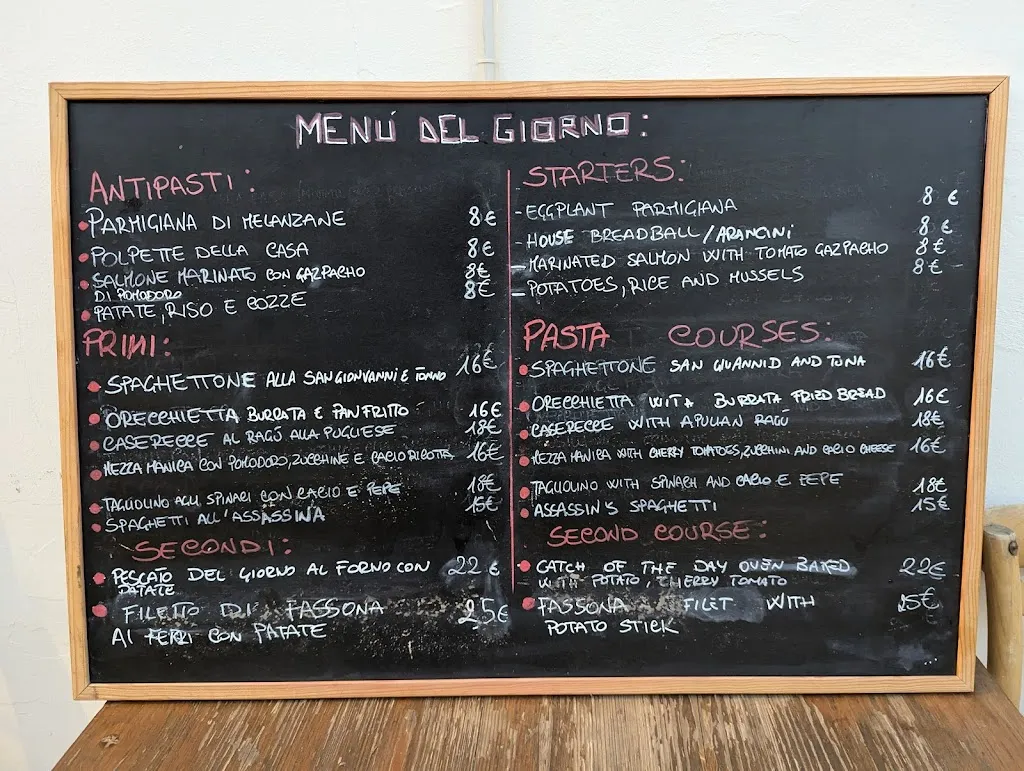 MENÚ DEL GIORNO:
ANTIPASTI:
PARMIGIANA DI MELANZANE 8€
POLPETTE DELLA CASA 8€
SALMONE MARINATO CON GAZPACHO 8€
DI POMODORO
PATATE, RISO E COZZE 8€
PRIMI:
SPAGHETTONE ALLA SANGIONVANNI E TONNO 16€
ORECCHIETTA BURRATA E PAN FRITTO 16€
CASERECCE AL RAGÚ ALLA PUGLIESE 18€
MEZZA MANICA CON POMODORO, ZUCCHINE E CACIO RICOTTA 16€
TAGLIOLINO AGLI SPINACI CON CACIO E PEPE 18€
SPAGHETTI ALL'ASSASSINA 15€
SECONDI:
PESCATO DEL GIORNO AL FORNO CON 22€
PATATE
FILETTO DI FASSONA 25€
AI FERRI CON PATATE
STARTERS:
- EGGPLANT PARMIGIANA 8€
- HOUSE BREADBALL/ARANCINI 8€
- MARINATED SALMON WITH TOMATO GAZPACHO 8€
- POTATOES, RICE AND MUSSELS 8€
PASTA COURSES:
SPAGHETTONE SAN GUANNID AND TUNA 16€
ORECCHIETTA WITA BURRATA FRIED BREAD 16€
CASERECCE WITH APULIAN RAGÚ 18€
MEZZA MANICA WITH CHERRY TOMATOES, ZUCCHINI AND CACIO CHEESE 16€
TAGLIOLINO WITH SPINACH AND CACIO E PEPE 18€
ASSASSIN'S SPAGHETTI 15€
SECOND COURSE:
CATCH OF THE DAY OVEN BAKED 22€
WITH POTATO, CHERRY TOMATO
FASSONA FILET WITH 25€
POTATO STICK